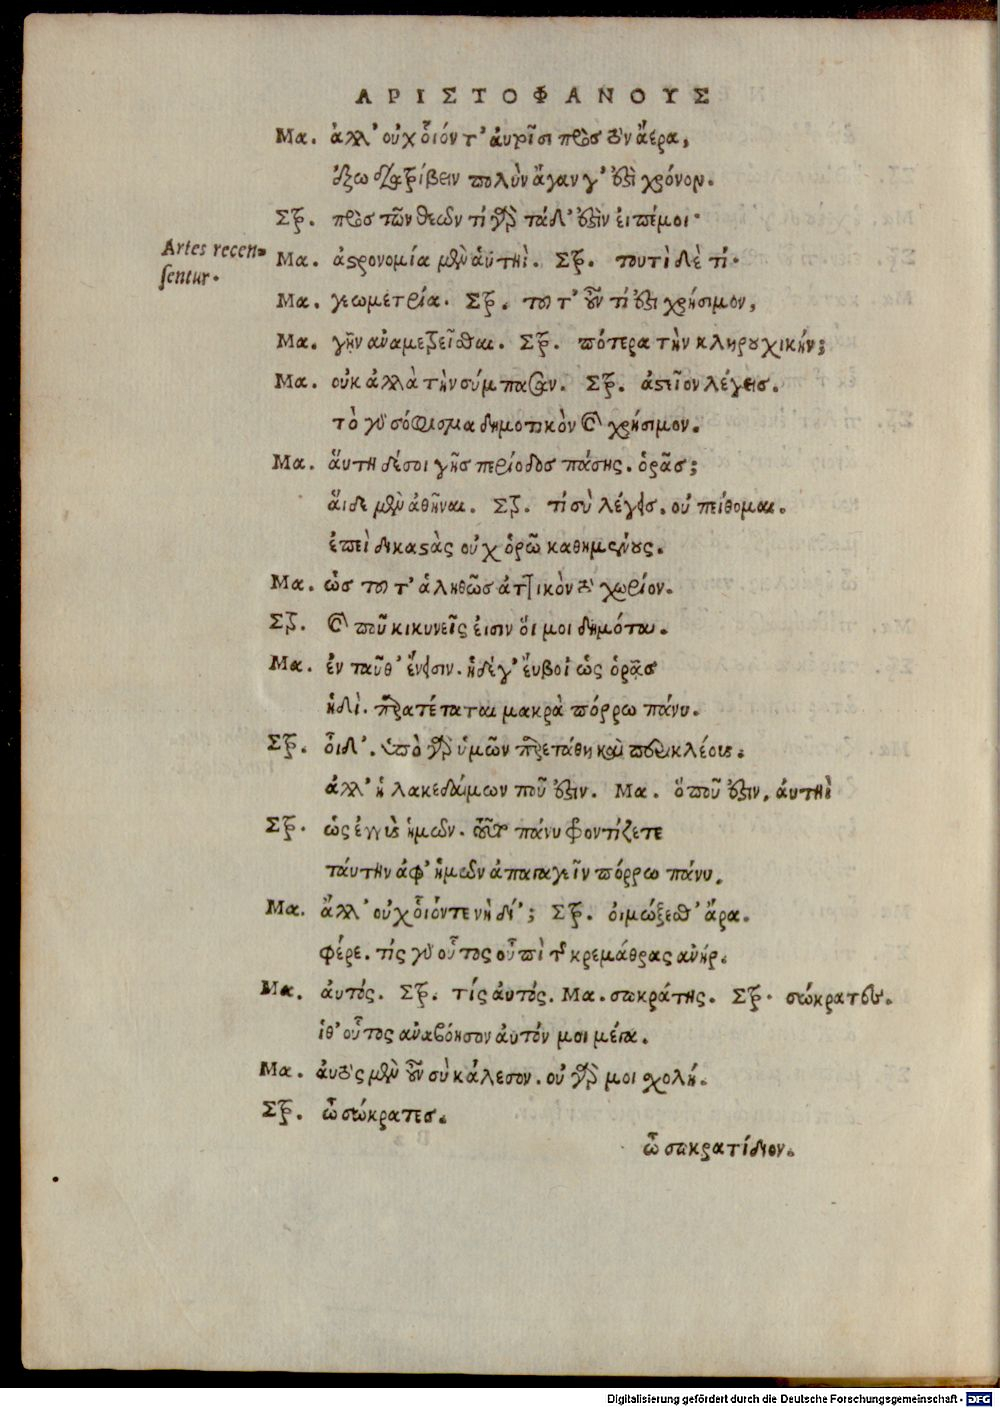 ΑΡΙΣΤΟΦΑΝΟΥΣ
Μα. ἀλλ' οὐχ οἷόν τ' ἀυτοῖσι πρὸς τὸν ἀέρα,
ἔξω διατρίβειν πολὺν ἄγαν γ' ἐστὶ χρόνον.
Στρ. πρὸς τῶν θεῶν τί γὰρ τάδ' ἐστὶν ἐιπέμοι·
Artes recen-
sentur.
Μα. ἀστρονομία μὲν ἁύτηὶ. Στρ. τουτὶ δὲ τί·
Μα. γεωμετρία. Στρ. τοῦτ' οὖν τί ἐστι χρήσιμον,
Μα. γῆν αναμετρεῖσθαι. Στρ. πότερα τὴν κληρουχικήν;
Μα. ουκ ἀλλὰ τὴν σύμπασαν. Στρ. ἀστεῖον λέγεις.
τὸ γὰρ σόφισμα δημοτικὸν καὶ χρήσιμον.
Μα. ἅυτη δέσοι γῆς περίοδος πάσης. ὁρᾶς;
ἅιδε μὲν ἀθῆναι. Στρ. τί σὺ λέγεις. οὐ πείθομαι.
ἐπεὶ δικαστὰς οὐχ ὁρῶ καθημένους.
Μα. ὡς τοῦτ' ἀληθῶς ἀττικὸν τὸ χωρίον.
Στρ. καὶ ποῦ κικυνεῖς ἐισιν ὅι μοι δημόται.
Μα. ἐν ταῦθ' ἔνεισιν. ἡδέγ' ἔυβοι' ὡς ὁρᾷς
ἡδὶ. παρατέταται μακρὰ πόρρω πάνυ.
Στρ. οἶδ'. ὑπὸ γὰρ ὑμῶν παρετάθη καὶ περικλέους.
ἀλλ' ἡ λακεδαίμων ποῦ ἐστιν. Μα. ὅπου ἐστιν, ἁυτηὶ
Στρ. ὡς ἐγγὺς ἡμῶν. τοῦτο πάνυ φροντίζετε
τάυτην ἀφ' ἡμῶν ἀπαγαγεῖν πόρρω πάνυ.
Μα. ἀλλ' οὐχ οἷόντε νὴ δί'; Στρ. ὀιμώξεσθ' ἄρα.
φέρε. τίς γὰρ οὗτος οὑπὶ τῆς κρεμάθρας ανήρ.
Μα. ἀυτός. Στρ. τίς ἀυτός. Μα. σωκράτης. Στρ. σώκρατες.
ἴθ' οὗτος αναβόησον ἀυτόν μοι μέγα.
Μα. ἀυτὸς μὲν οὖν σὺ κάλεσον. οὐ γὰρ μοι σχολή.
Στρ. ὦ σώκρατες.
ὦ σωκρατίδιον.
Digitalisierung gefördert durch die Deutsche Forschungsgemeinschaft - DFG